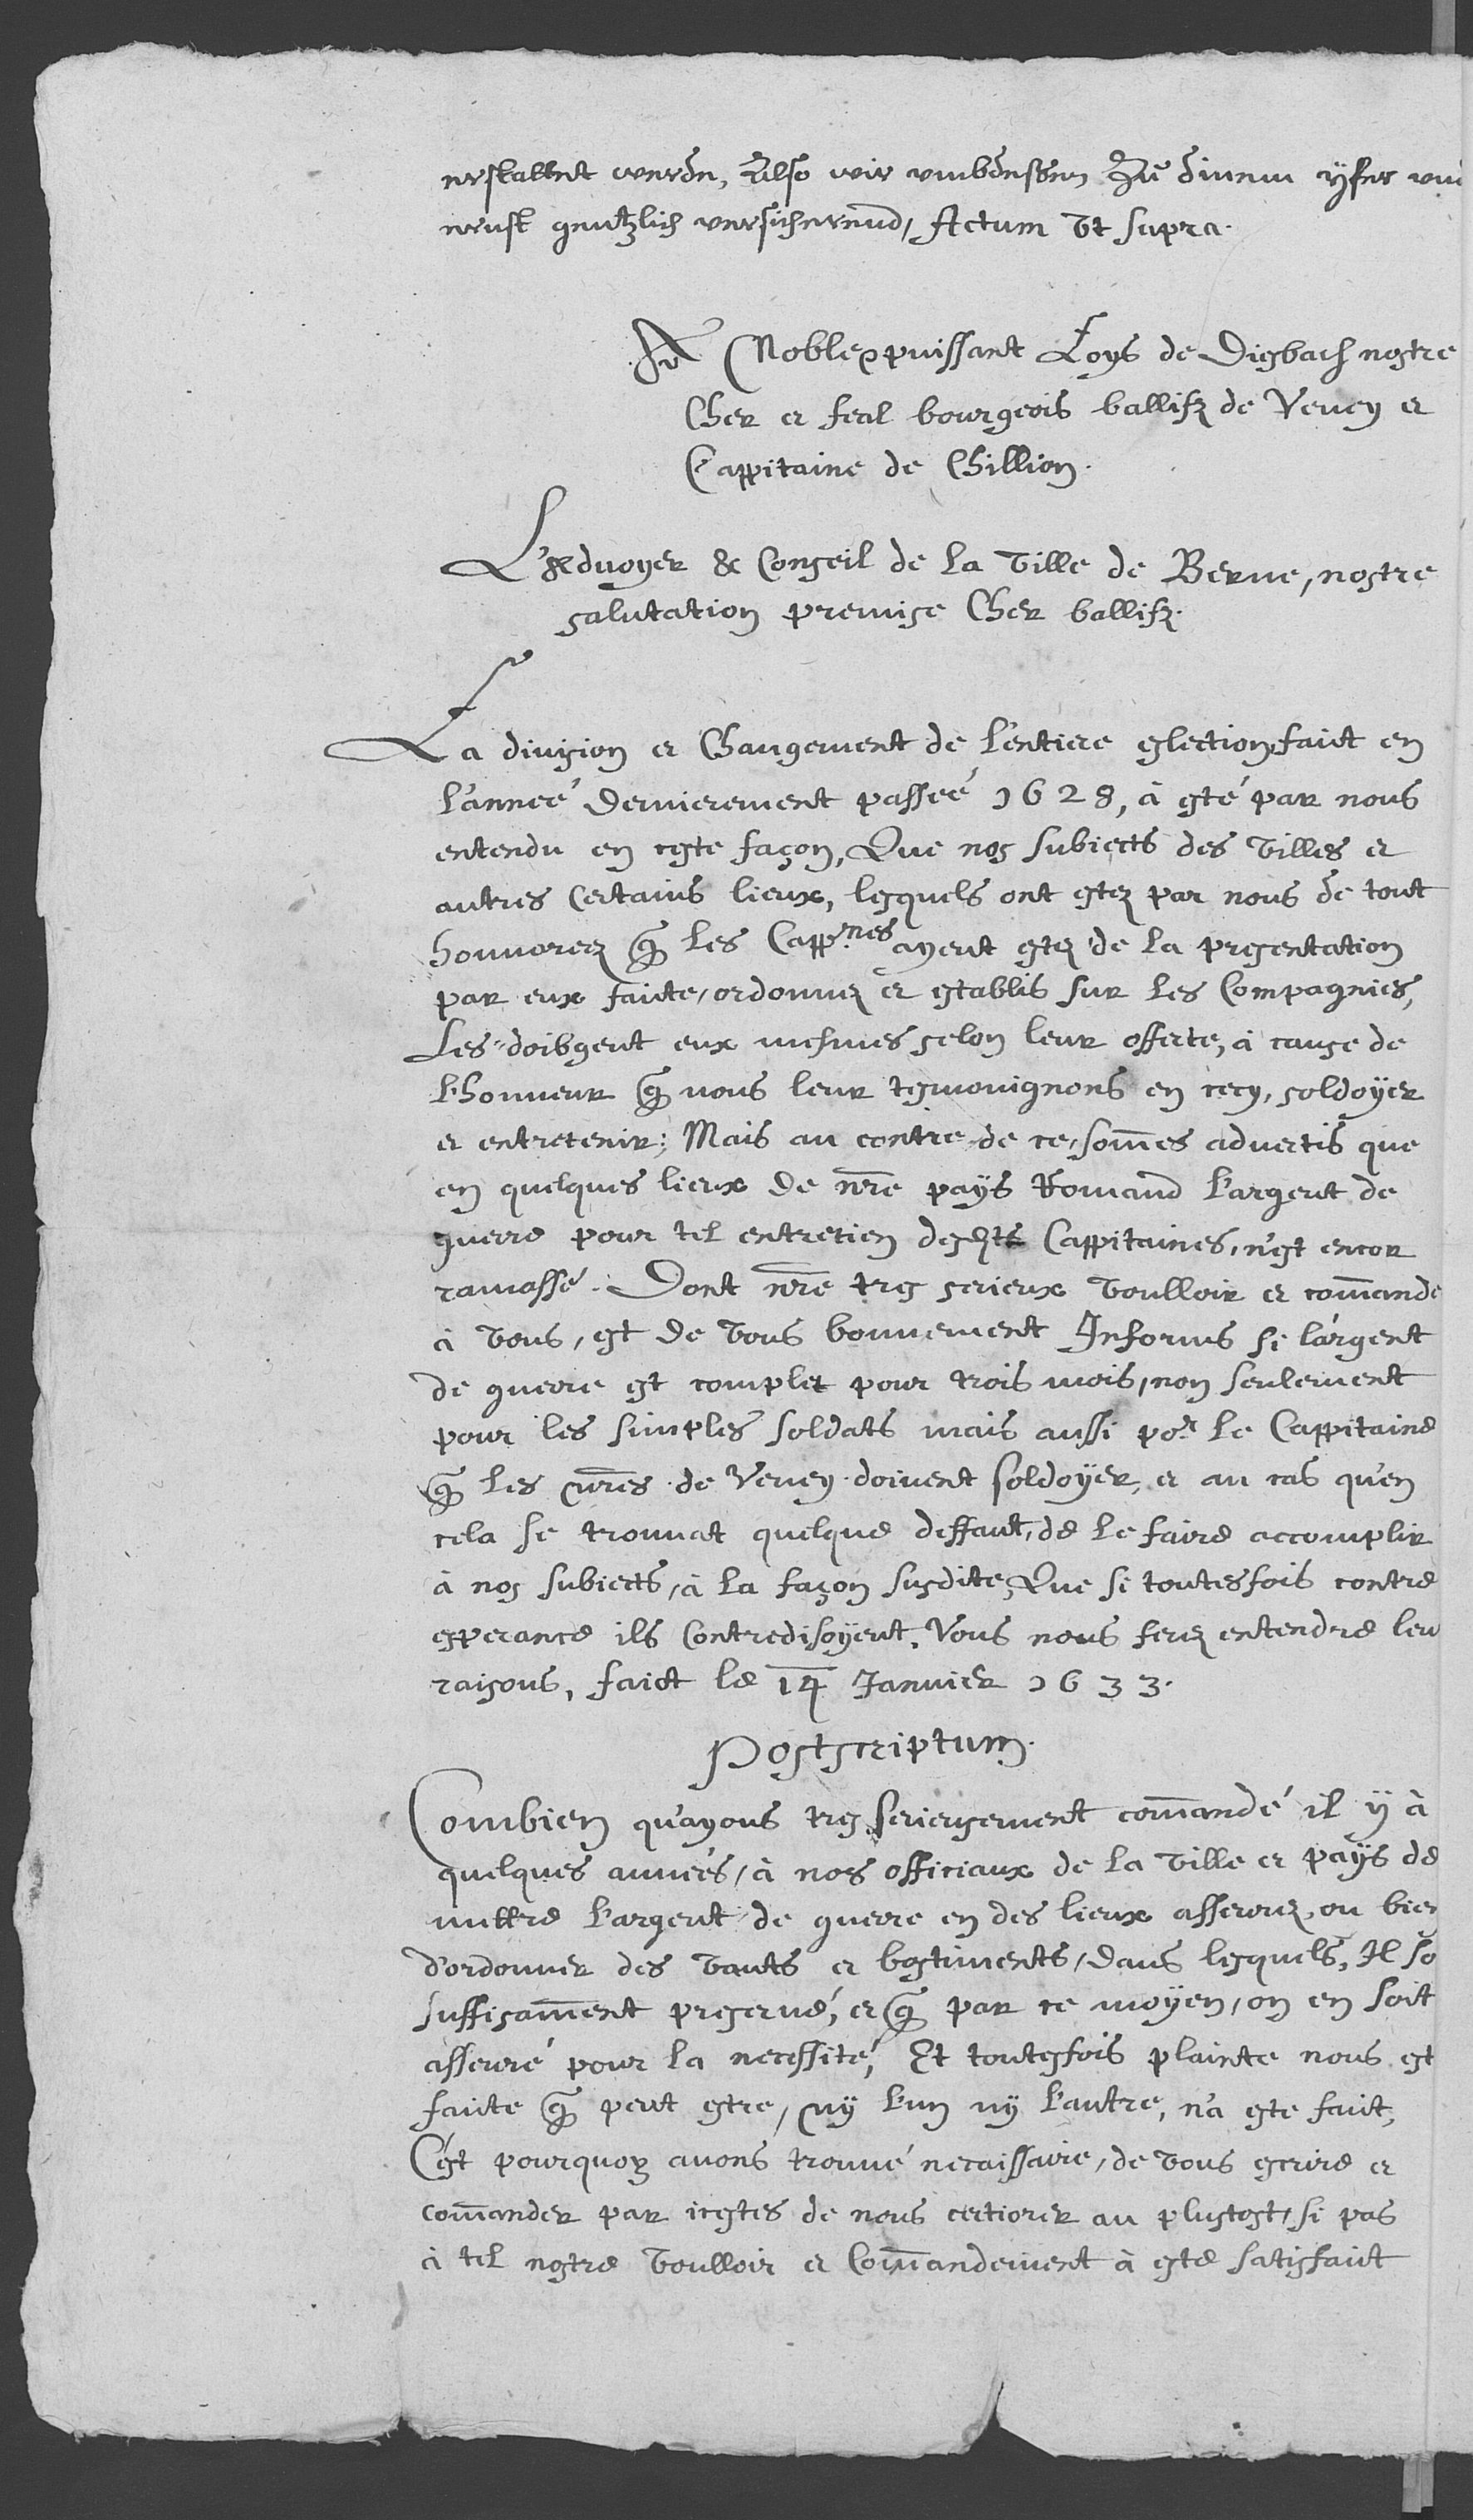 erstattent werden, Also wir unns deßenn Zu dinem yfer und
ernst gentzlich versicherend, Actum Vt supra.
Au Noble & puissant Loys de Diesbach nostre
Cher et feal bourgeois ballifz de Vevey et
Cappitaine de Chillion.
L'Advoyer & Conseil de la Ville de Berne, nostre
salutation premise Cher ballifz.
La division et Changement de l'entiere eslection faict en
l'anneé dernierement passeé 1628, à esté par nous
entendu en ceste façon, Que nos subiects des Villes et
autres certains lieux, lesquels ont estez par nous de tout
honnorez q̃ les Capp.nes ayent estez de la presentation
par eux faicte, ordonnez et establis sur les Compagnies,
Les doibgent eux mesmes selon leur offerte, à cause de
l'honneur q̃ nous leur tesmoignons en cecy, soldoyer
et entretenir: Mais au contre de ce, som̃es advertis que
en quelques lieux de nr̃e paÿs Romand l'argent de
guerre pour tel entretien desdts Cappitaines, n'est encor
ramassé. Dont nr̃e tres serieux Voulloir et com̃ande
à Vous, est de Vous bonnement Informs si l'argent
de guerre est complet pour trois mois, non seulement
pour les simples soldats mais aussi por le Cappitaine
q̃ les nr̃es de Vevey doivent soldoÿer, et au cas qu'en
cela se trouvat quelque deffaut, de le faire accomplir
à nos subiects, à la façon susdite, Que si toutesfois contre
esperance ils contredisoÿent, Vous nous ferez entendre leu
raisons, faict le 14 Janvier 1633.
Postscriptum.
Combien qu'ayons tres serieusement com̃andé il ÿ à
quelques anneés, à nos officiaux de la Ville et paÿs de
mettre l'argent de guerre en des lieux asseurez, ou bien
d'ordonner des Vauts et bastiments, dans lesquels, Il so
suffisam̃ent preservé, et q̃ par ce moyen, on en soit
asseuré pour la necessité, Et toutesfois plainte nous est
faicte q̃ peut estre, nÿ l'un nÿ l'autre, n'a este faict,
C'est pourquoy avons trouvé necaissaire, de Vous escrire et
com̃ander par icestes de nous certiorer au plustost, si pas
à tel nostre Voulloir et Com̃andement à este satisfaict